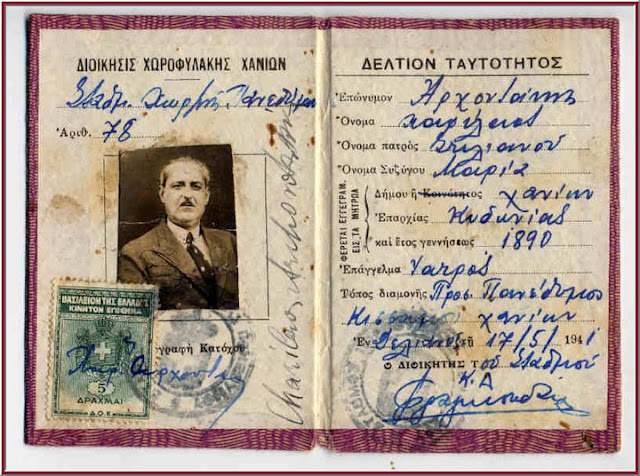 ΔΙΟΙΚΗΣΙΣ ΧΩΡΟΦΥΛΑΚΗΣ ΧΑΝΙΩΝ
Σταθμ. Χωρ)κής
Ἀριθ. 78
ΒΑΣΙΛΕΙΟΝ ΤΗΣ ΕΛΛΑΔΟΣ
ΚΙΝΗΤΟΝ ΕΠΙΣΗΜΑ
5
ΔΡΑΧΜΑΙ
Δ.Ο.Ε.
ογραφὴ Κατόχου
Charilaos
ΔΕΛΤΙΟΝ ΤΑΥΤΟΤΗΤΟΣ
Ἐπώνυμον Ἀρχοντάκης
Ὄνομα Χαρίλαος
Ὄνομα πατρὸς Στυλιανοῦ
Ὄνομα Συζύγου Μαρία
ΦΕΡΕΤΑΙ ΕΓΓΕΓΡΑΜ. ΕΙΣ ΤΑ ΜΗΤΡΩΑ
Δήμου ἢ Κοινότητος Χανίων
Ἐπαρχίας Κυδωνίας
καὶ ἔτος γεννήσεως 1890
Ἐπάγγελμα Ἰατρός
Τόπος διαμονῆς Προσ. Πανέθυμος
Κισσάμου Χανίων
Ἐν τῇ 17/5/1941
Ὁ ΔΙΟΙΚΗΤΗΣ τοῦ Σταθμοῦ
Κ.Α